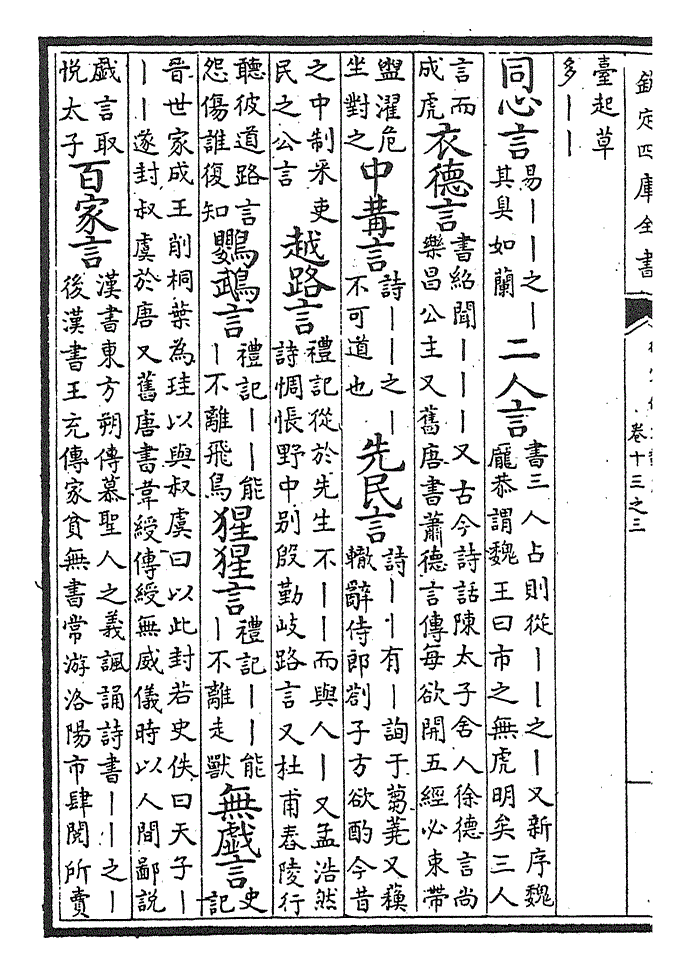 欽定四庫全書
卷十三之三
臺起草
多｜｜
同心言
易｜｜之｜
其臭如蘭
二人言
書三人占則從｜｜之｜又新序魏
龎恭謂魏王曰市之無虎明矣三人
言而
成虎
衣德言
書紹聞｜｜｜又古今詩話陳太子舍人徐德言尚
樂昌公主又舊唐書蕭德言傳每欲開五經必束帶
盥濯危
坐對之
中冓言
詩｜｜之｜
不可道也
先民言
詩｜｜有｜詢于蒭蕘又蘓
轍辭侍郎劄子方欲酌今昔
之中制采吏
民之公言
越路言
禮記從於先生不｜｜而與人｜又孟浩然
詩惆悵野中别殷勤岐路言又杜甫舂陵行
聽彼道路言
怨傷誰復知
鸚鵡言
禮記｜｜能
｜不離飛鳥
猩猩言
禮記｜｜能
｜不離走獸
無戯言
史
記
晉世家成王削桐葉為珪以與叔虞曰以此封若史佚曰天子｜
｜｜遂封叔虞於唐又舊唐書韋綬傳綬無威儀時以人間鄙説
戯言取
悅太子
百家言
漢書東方朔傳慕聖人之義諷誦詩書｜｜之｜
後漢書王充傳家貧無書常游洛陽市肆閲所賣